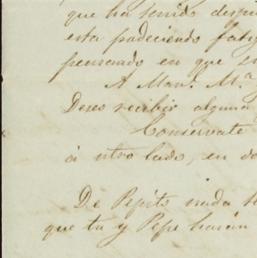 que ha sentido despu
esta padeciendo fatig
pensando en que
A Man.l M.a
Deseo recibir alguna
Consérvate
á ntro lado, en do
De Pepito nada
que tu y Pepe harán